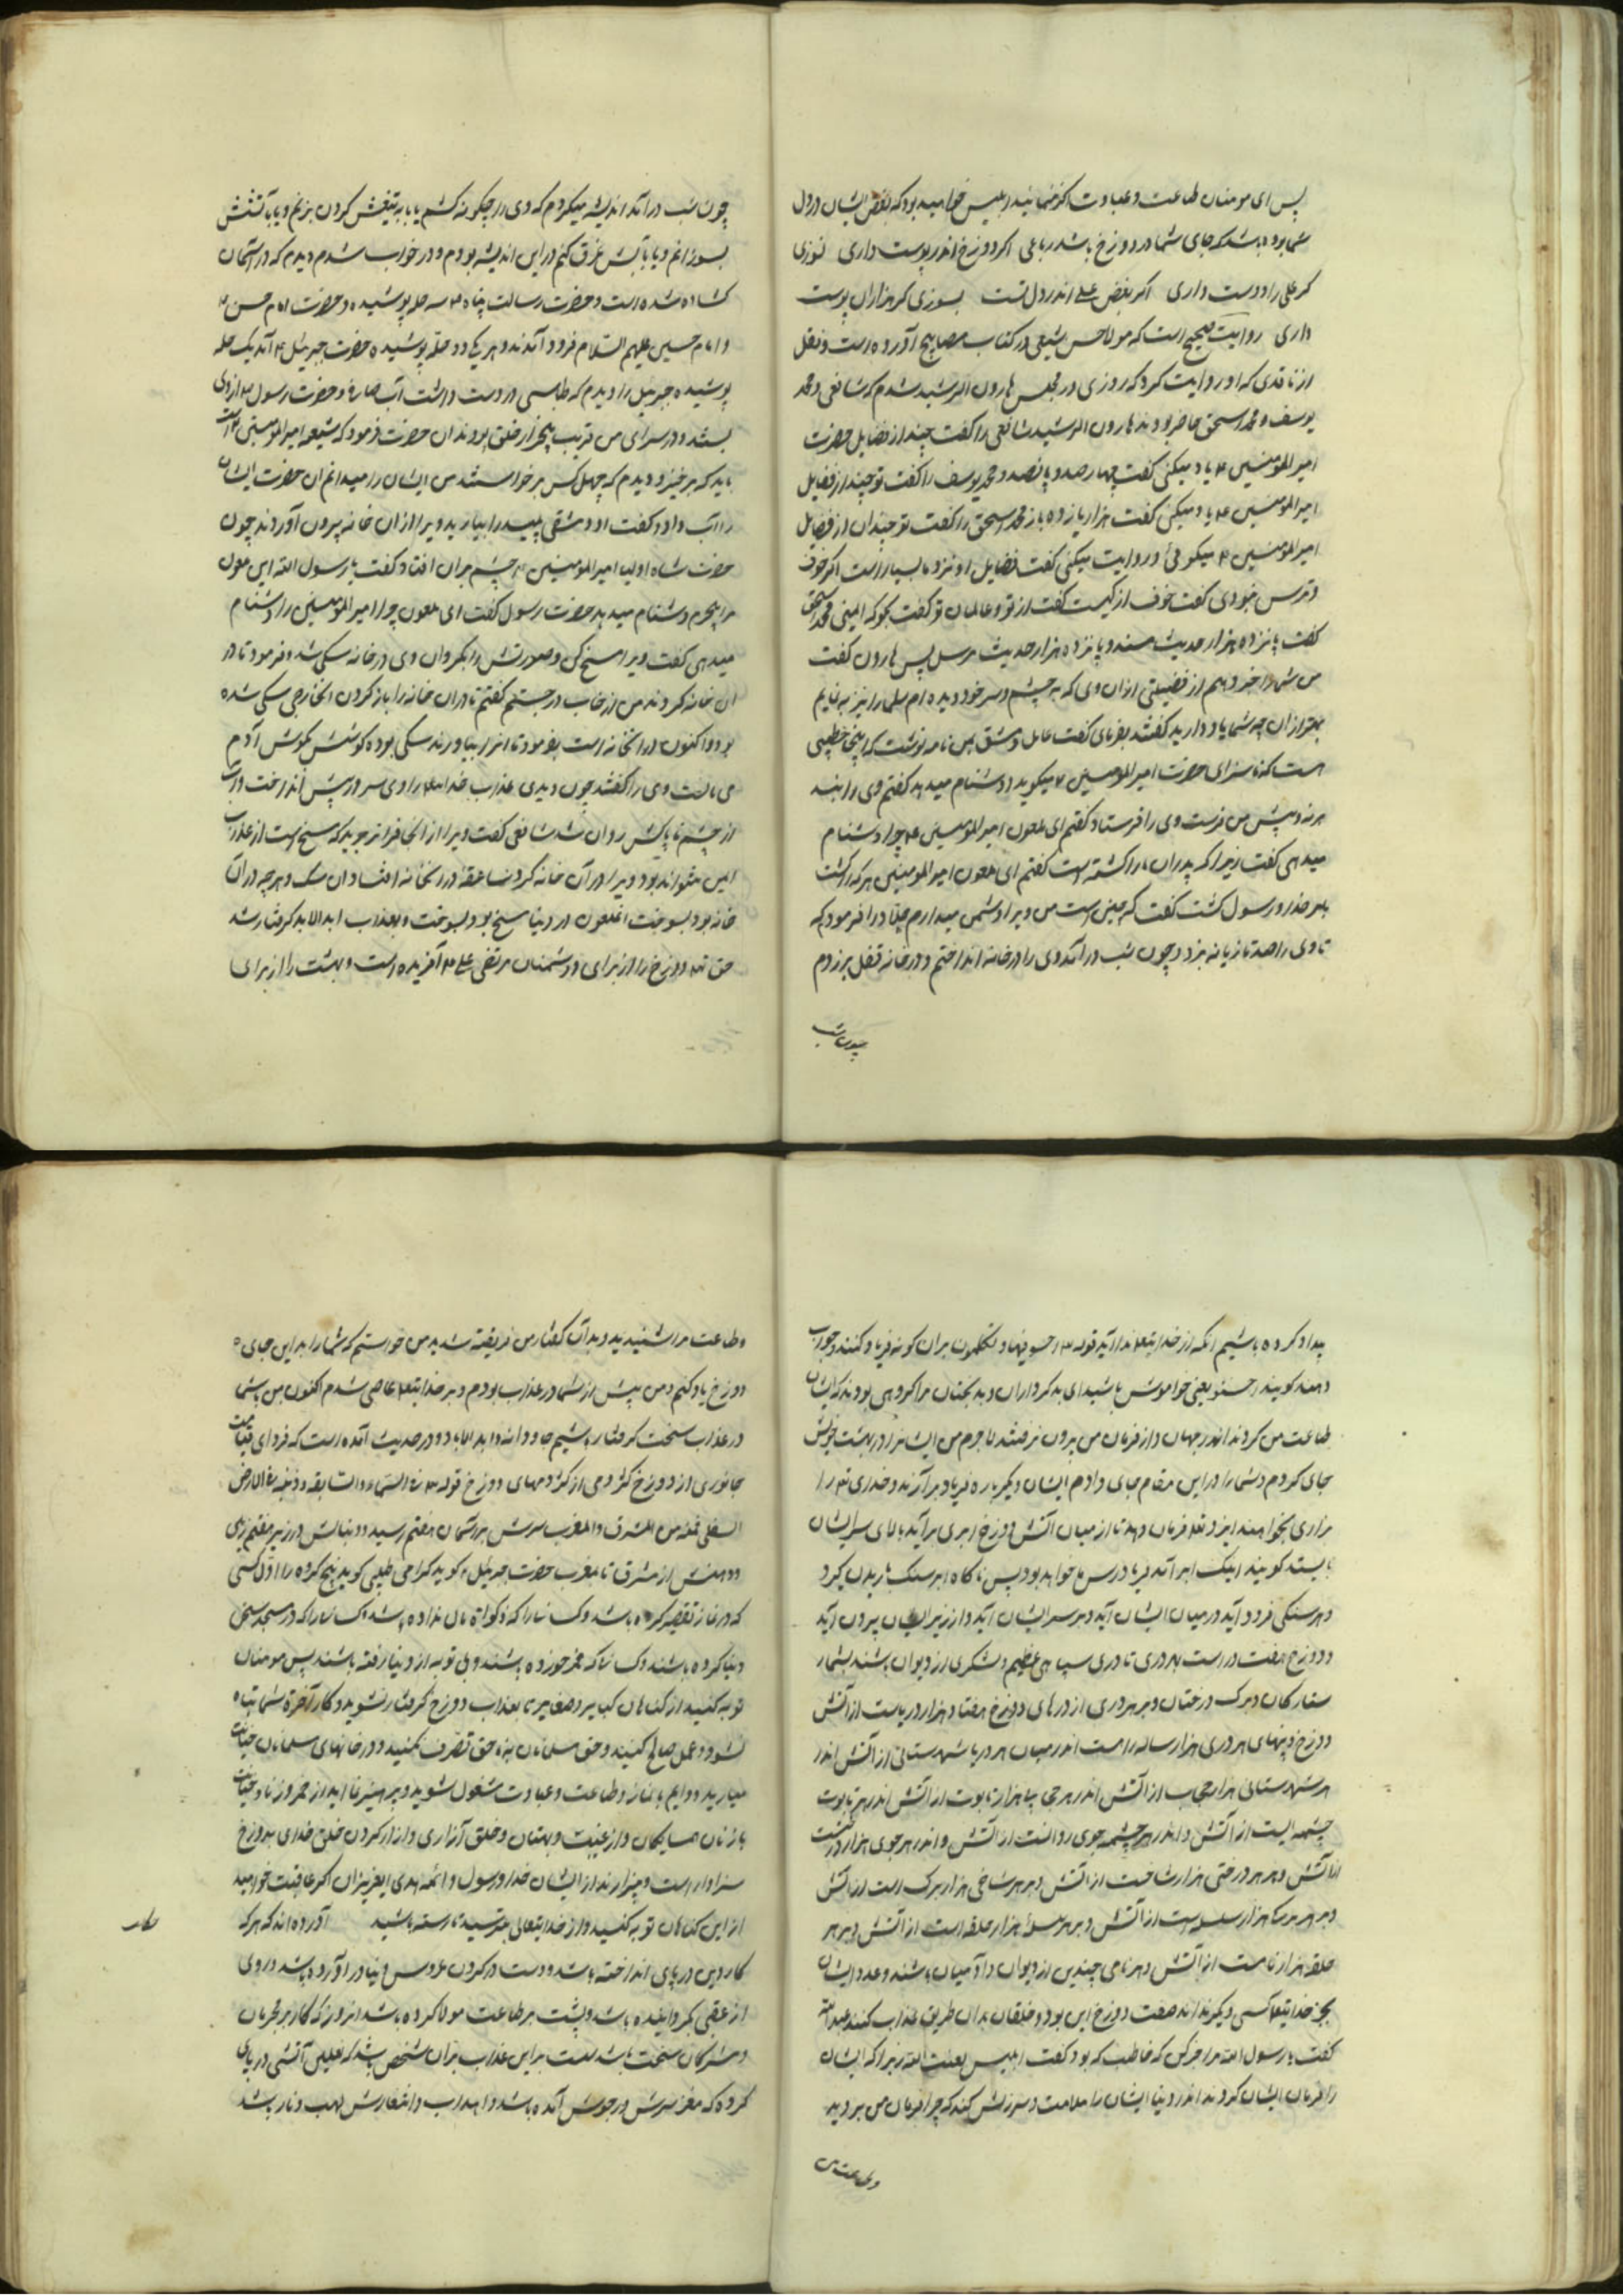 پس ای مومنان طاعت و عبادت اگر نمایید ابلیس خواهید بود که بغض ایشان در دل
شما بوده باشد که جای شما در دوزخ باشد رباعی اگر دوزخ اندر پوست داری نسوزی
گر علی را دوست داری اگر بغض علی اندر دل تست بسوزی گر هزاران پوست
داری روایت صحیح است که مولا حسن شیعی در کتاب مصابیح آورده است و نقل
از ناقدی که او روایت کرد که روزی در مجلس هارون الرشید شدم که شافعی و محمد
یوسف و محمد اسحق حاضر بودند هارون الرشید شافعی را گفت چند از فضایل حضرت
امیر المومنین ع یاد میکنی گفت چهار صد و پانصد و محمد یوسف را گفت تو چند از فضایل
امیر المومنین ع یاد میکنی گفت هزار یا زده باز محمد اسحق را گفت تو چندان از فضایل
امیر المومنین ع میگوئی و روایت میکنی گفت فضایل او نزد ما بسیار است اگر خوف
و ترس نبودی گفت خوف از کیست گفت از تو و عاملان تو گفت بگو که ایمنی محمد اسحق
گفت پانزده هزار حدیث مسند و پانزده هزار حدیث مرسل پس هارون گفت
من شما را خبر دهم از فضیلتی از آن وی که به چشم و سر خود دیده ام شما را نیز بنمایم
بهتر از آن چه شما یاد دارید گفتند بفرمای گفت عامل دمشق بمن نامه نوشت که اینجا خطیبی
است که ناسزای حضرت امیر المومنین ع میگوید و دشنام میدهد گفتم وی را بند
برنه و پیش من فرست وی را فرستاد گفتم ای ملعون امیر المومنین ع چرا دشنام
میدهی گفت زیرا که پدران ما را کشته است گفتم ای ملعون امیر المومنین هر که را کشت
بامر خدا و رسول کشت گفت که چنین است من ویرا دشمن میدارم جلاد را فرمودم که
تا وی را صد تازیانه بزد و چون شب در آمد وی را در خانه انداختم و در خانه قفل بر زدم
چون شب
چون شب در آمد اندیشه میکردم که وی را چگونه کشم یا به تیغش گردن بزنم و یا بآتشش
بسوزانم و یا بآبش غرق کنم در این اندیشه بودم و در خواب شدم دیدم که در آسمان
گشاده شده است و حضرت رسالت پناه ص سه حله پوشیده و حضرت امام حسن ع
و امام حسین علیهم السلام فرود آمدند و هر یکی دو حله پوشیده حضرت جبرئیل ع آمد یک حله
پوشیده جبرئیل را دیدم که طاسی در دست داشت آب صاف و حضرت رسول ص از وی
بستد و در سرای من قریب پنج هزار خلق بودند آن حضرت فرمود که شیعه امیر المومنین ع است
باید که برخیزد دیدم که چهل کس برخواستند من ایشان را میدانم آن حضرت ایشان
را آب داد و گفت او دمشقی پلید را بیارید ویرا از آن خانه بیرون آوردند چون
حضرت شاه اولیا امیر المومنین ع چشم بران افتاد گفت یا رسول الله این ملعون
مرا بیجرم دشنام میدهد حضرت رسول گفت ای ملعون چرا امیر المومنین را دشنام
میدهی گفت ویرا مسخ کن و صورتش را بگردان وی در خانه سگی شد و فرمود تا در
آن خانه کردند من از خواب در جستم گفتم تا در آن خانه را باز کردن آن خارجی سگی شده
بود و اکنون در آن خانه است بفرمود تا آنرا بیاورند سگی بوده گوشش بگوش آدم
می مانست وی را گفتند چون دیدی عذاب خدا را وی سر در پیش انداخت و آب
از چشم ناپاکش روان شد شافعی گفت ویرا از اینجا فراتر برید که مسخ است از عذاب
ایمن نتواند بود ویرا در آن خانه کردند صاعقه در آن خانه افتاد آن سگ و هر چه در آن
خانه بود بسوخت آن ملعون در دنیا مسخ بود و بسوخت و بعذاب ابد الاباد گرفتار شد
حق تعالی دوزخ را از برای دشمنان مرتضی علی ع آفریده است و بهشت را از برای
پیدا کرده باشیم آنکه از خدایتعالی ندا آید قوله تعالی اخسوا فیها ولا تکلمون بر آن گونه فریاد کنند و جواب
دهند گویند اخسئوا یعنی خاموش باشید ای بدکرداران و بدبختان مرا گروهی بودند که ایشان
طاعت من کردند اندر جهان و از فرمان من بیرون نرفتند لاجرم من ایشانرا در بهشت خویش
جای کردم و شما را در این مقام جای دادم ایشان دیگر باره فریاد برآرند و خدای تعالی را
بزاری بخوانند ایزد تعالی فرمان دهد تا از میان آتش دوزخ ابری برآید بالای سر ایشان
بایستد گویند اینک ابر آمد فریادرس ما خواهد بود پس ناگاه ابر سنگ باریدن گیرد
و هر سنگی فرود آید در میان ایشان آید و بر سر ایشان آید و از زیر ایشان بیرون آید
و دوزخ هفت در است بهر دری تا دری سپاهی عظیم و لشگری از دیوان باشند بشمار
ستارگان و برگ درختان و بر هر دری از درهای دوزخ هفتاد هزار دریاست از آتش
دوزخ و پهنای هر دری هزار ساله راهست اندر میان هر دریا شهرستانی از آتش اندر
هر شهرستانی هزار چاه از آتش اندر هر چاهی هزار تابوت از آتش اندر هر تابوت
چشمه ایست از آتش و اندر هر چشمه جوی روانست از آتش و اندر هر جوی هزار درخت
از آتش و هر هر درختی هزار شاخست از آتش و بر هر شاخی هزار برگ است از آتش
و بر هر برگ هزار سلسله است از آتش و بر هر سلسله هزار حلقه است از آتش و بر هر
حلقه هزار نامست از آتش و هر نامی چندین از دیوان و آدمیان باشند و عدد ایشان
بجز خدایتعالی کسی دیگر نداند صفت دوزخ این بود و خلقان بدان طریق عذاب کنند عبدالله
گفت یا رسول الله مرا خبر کن که خاطب که بود گفت ابلیس لعنت الله زیرا که ایشان
را فرمان ایشان کردند اندر دنیا ایشان را ملامت و سرزنش کند که چرا فرمان من بردید
و طاعت من
و طاعت مرا شنیدید و بدان گفتار من فریفته شدید من خواستم که شما را بداین جای
دوزخ یاد کنم و من پیش از شما در عذاب بودم و بر خدایتعالی عاصی شدم اکنون من با شما
در عذاب سخت گرفتار باشیم جاودانه و ابد الاباد و در حدیث آمده است که فردای قیامت
جانوری از دوزخ کژدمی از کژدمهای دوزخ قوله تعالی فی السماء السابقه و ذنبه فی الارض
السفلی فمه من المشرق و المغرب سرش بر آسمان هفتم رسید و دنبالش در زیر هفتم زمین
و دهنش از مشرق تا مغرب حضرت جبرئیل ع گوید که را می طلبی گوید پنج گروه را اول کسی
که در نماز تقصیر کرده باشد و کسانیرا که ذکواة مال نداده باشد و کسانیرا که در مسجد سخن
دنیا کرده باشند و کسانیکه خمر خورده باشند و بی توبه از دنیا رفته باشند پس مومنان
توبه کنید از گناهان کبایر و صغایر تا بعذاب دوزخ گرفتار نشوید و کار آخرة شما تباه
نشود و عمل صالح کنید و حق مسلمانان بناحق تصرف نکنید و در خانهای مسلمانان خیانت
میارید و دایم با نماز و طاعت و عبادت مشغول شوید و پرهیز نمائید از خمر و زنا و خیانت
با زنان همسایگان و از غیبت و بهتان و خلق آزاری و از آزار کردن خلق خدای بدوزخ
سزاوار است و بیزارند از ایشان خدا و رسول و ائمه هدی ایعزیزان اگر عاقبت خواهید
از این گناهان توبه کنید و از خدایتعالی بترسید تا رسته باشید آورده اند که هر که
کار دین در پای انداخته باشد و دست در گردن عروس دنیا در آورده باشد و روی
از عقبی بگردانیده باشد و پشت بر طاعت مولا کرده باشد امروز که کار بر مجرمان
و مشرکان سخت باشد بر این عذاب بران شخص باشد که نعلین آتشی در پای
کرده که مغز سرش در جوش آمده باشد و اهداب و اشعارش لهب و نار باشد